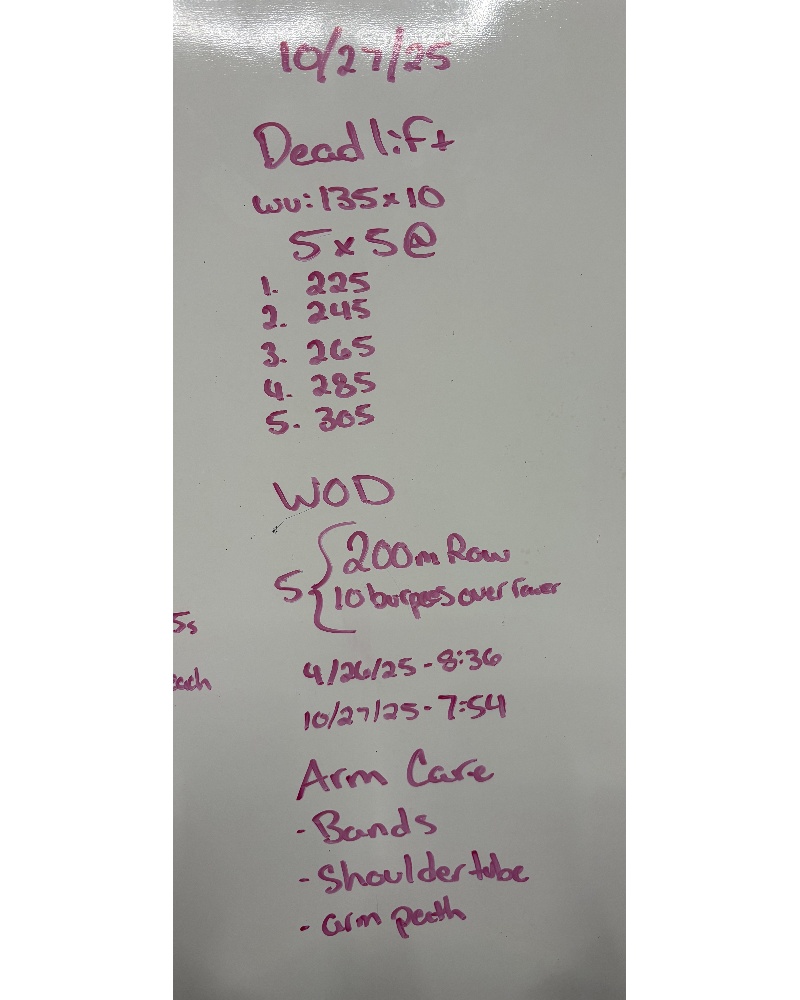 10/27/25
Deadlift
WU: 135 x 10
5 x 5 @
1. 225
2. 245
3. 265
4. 285
5. 305
WOD
5 { 200m Row
10 burpees over rower
4/26/25 - 8:36
10/27/25 - 7:54
5s
each
Arm Care
- Bands
- Shoulder tube
- arm